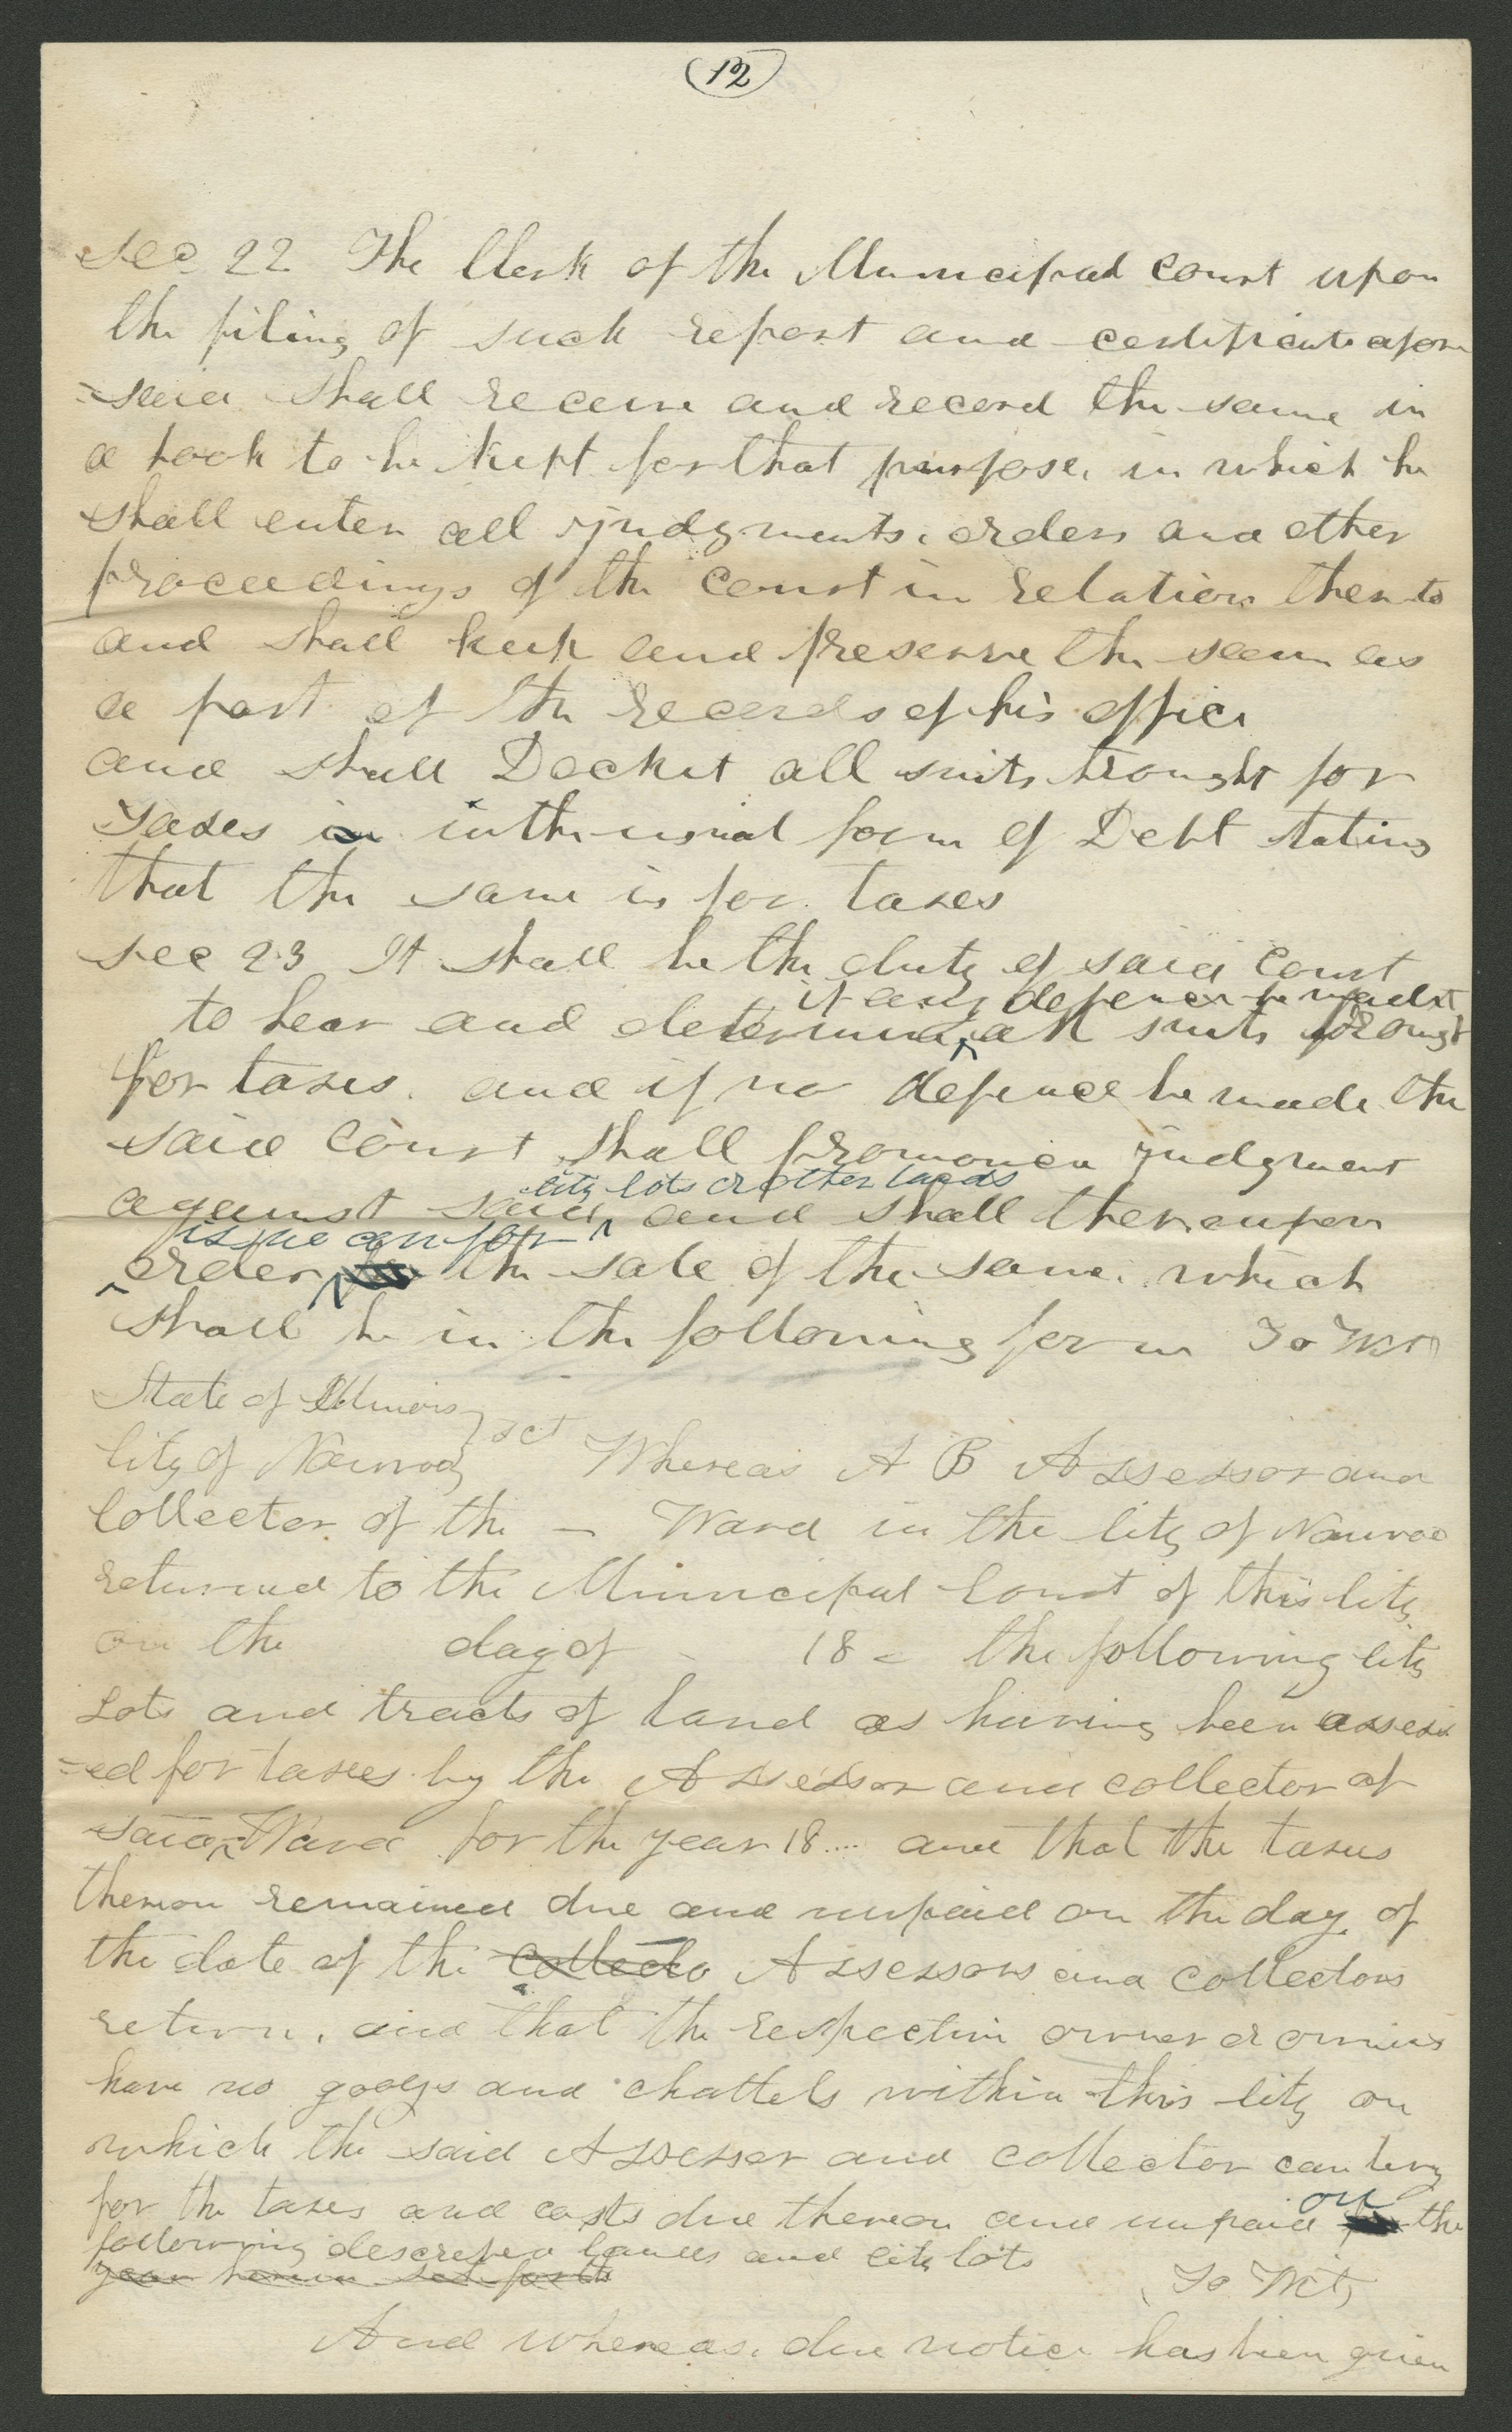 12
Sec 22 The Clerk of the Municipal court upon
the filing of such report and certificate afore
=said shall receive and record the same in
a book to be kept for that purpose, in which he
shall enter all judgments, orders and other
proceedings of the court in relation thereto
and shall keep and preserve the same as
a part of the records of his office
and shall Docket all suits brought for
Taxes in in the usual form of Debt stating
that the same is for taxes
Sec 23 It shall be the duty of said Court
if any defence be made
to hear and determine all suits brought
for taxes. and if no defence be made the
said Court shall pronounce judgment
city lots or other lands
against said and shall thereupon
issue an for
order the sale of the same. which
shall be in the following form To Wit
State of Illinois
City of Nauvoo } sct Whereas A B Assessor and
Collector of the — Ward in the City of Nauvoo
returned to the Municipal Court of this City
on the day of 18 the following City
Lots and tracts of land as having been assess
=ed for taxes by the Assessor and collector of
said Ward for the year 18.... and that the taxes
thereon remained due and unpaid on the day of
the date of the collecto Assessors and Collectors
return, and that the respective owner or owners
have no goods and chattels within this City on
which the said Assessor and collector can levy
on
for the taxes and costs due thereon and unpaid the
following described lands and city lots
year herein set forth To Wit,
And whereas, due notice has been given